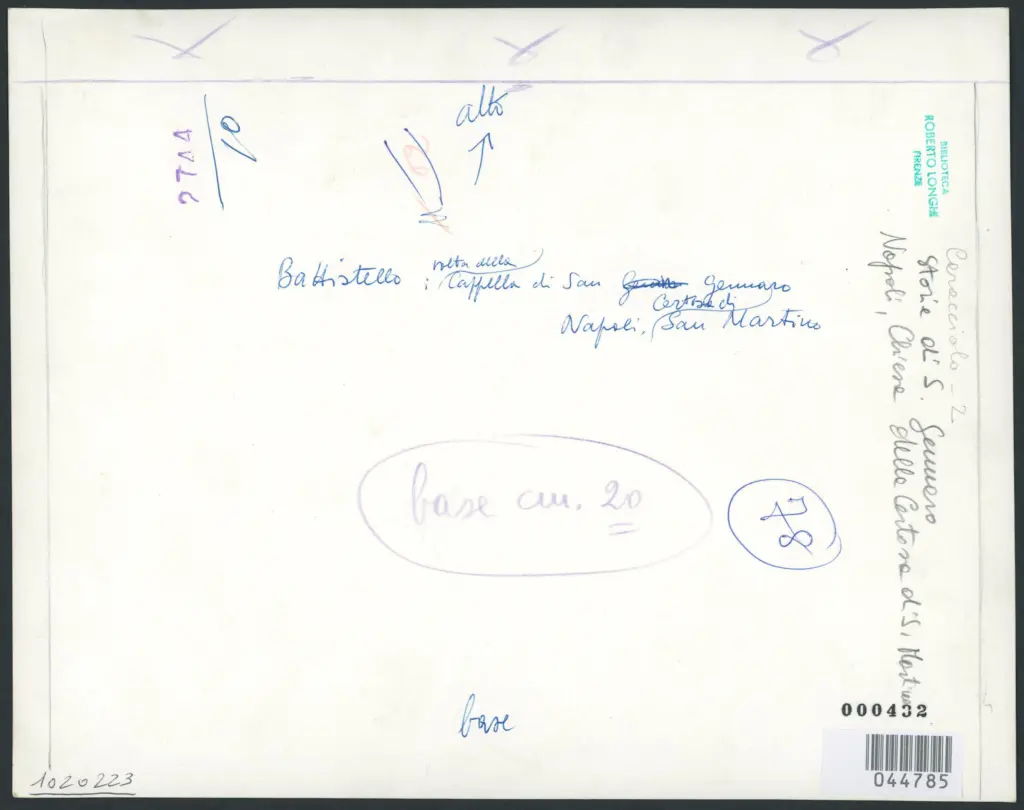 alto
10
2744
volta della
Battistello : Cappella di San Gennaro
Certosa di
Napoli, San Martino
base cm. 20
78
base
BIBLIOTECA
ROBERTO LONGHI
FIRENZE
Caracciolo - 2
Storie di S. Gennaro
Napoli, Chiesa della Certosa di S. Martino
000432
044785
1020223